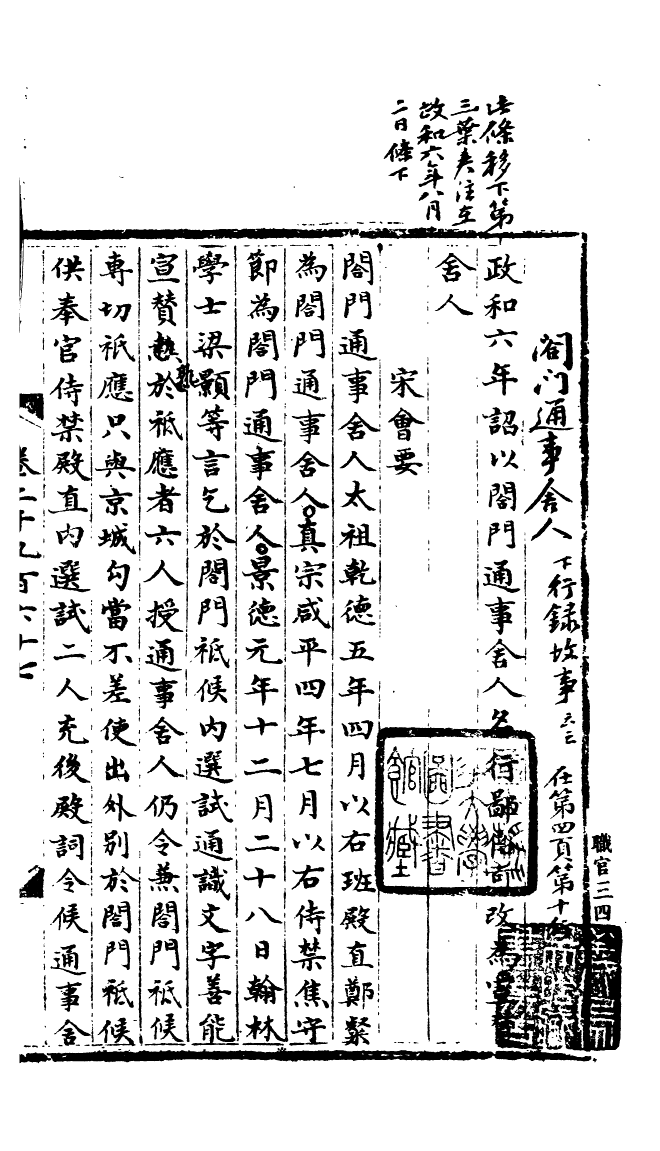 此條移下第
三葉夾注在
政和六年八月
二日條下
閤门通事舍人 下行錄故事云云 在第四頁第十
政和六年詔以閤門通事舍人名行鄙 改為宣
舍人
宋會要
閤門通事舍人太祖乾德五年四月以右班殿直鄭繫
為閤門通事舍人。真宗咸平四年七月以右侍禁焦守
節為閤門通事舍人。景德元年十二月二十八日翰林
學士梁顥等言乞於閤門祗候內選試通識文字善能
宣贊熟於祗應者六人授通事舍人仍令兼閤門祗候
專切祗應只與京城勾當不差使出外別於閤門祗候
供奉官侍禁殿直內選試二人充後殿詞令候通事舍
卷二千九百六十七
職官三四